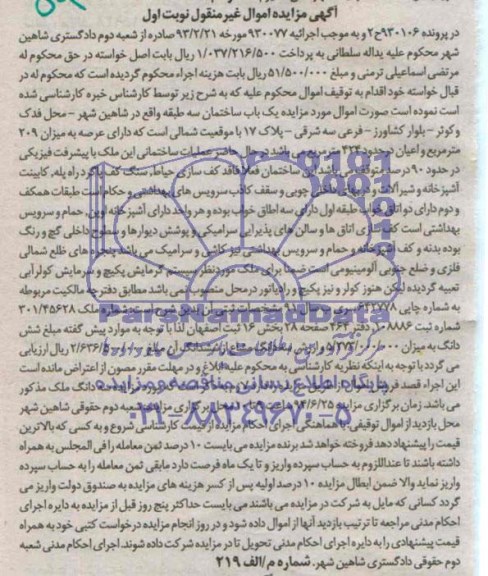 آگهی مزایده اموال غیر منقول نوبت اول
در پرونده ۹۳۰۱۰۶ح۲ و به موجب اجرائیه ۹۳۰۰۷۷ مورخه ۹۳/۲/۲۱ صادره از شعبه دوم دادگستری شاهین
شهر محکوم علیه یداله سلطانی به پرداخت ۱/۰۳۷/۲۱۶/۵۰۰ ریال بابت اصل خواسته در حق محکوم له
مرتضی اسماعیلی ترمنی و مبلغ ۵۱/۵۰۰/۰۰۰ ریال بابت هزینه اجراء محکوم گردیده است که محکوم له در
قبال خواسته خود اقدام به توقیف اموال محکوم علیه که به شرح زیر توسط کارشناس خبره کارشناسی شده
است نموده است صورت اموال مورد مزایده یک باب ساختمان سه طبقه واقع در شاهین شهر - محل فدک
و کوثر - بلوار کشاورز - فرعی سه شرقی - پلاک ۱۷ با موقعیت شمالی است که دارای عرصه به میزان ۲۰۹
مترمربع و اعیان در حدود ۴۲۴ مترمربع می باشد در حال حاضر عملیات ساختمانی این ملک با پیشرفت فیزیکی
در حدود ۹۰ درصد متوقف می باشد این ساختمان فعلا فاقد کف سازی حیاط، سنگ کف پاگرد راه پله، کابینت
آشپزخانه و شیرآلات و دربهای داخلی چوبی و سقف کاذب سرویس های بهداشتی و حکام است طبقات همکف
و دوم دارای دو اتاق خواب طبقه اول دارای سه اطاق خواب بوده و هر واحد دارای آشپزخانه اوپن، حمام و سرویس
بهداشتی است کف کلی اتاق ها و سالن های پذیرایی سرامیکی و پوشش دیوارها و سطوح داخلی گچ و رنگ
بوده بدنه و کف آشپزخانه و حمام و سرویس بهداشتی نیز کاشی و سرامیک می باشد پنجره های ظلع شمالی
فلزی و ضلع جنوبی آلومینیومی است ضمنا برای ملک موردنظر سیستم گرمایش پکیج و سرمایش کولر آبی
تعبیه گردیده لیکن هنوز کولر و نیز پکیج و رادیاتور در محل منصوب نمی باشد مطابق دفترچه مالکیت مربوطه
به شماره چاپی ۶۴۲۷۷۸ مشخصات ثبتی آن بدین شرح است شماره ملک ۳۰۱/۴۵۶۲۸
شماره ثبت ۱۰۸۸۶ دفتر ۲۶۳ صفحه ۲۸ بخش ۱۶ ثبت اصفهان لذا با توجه به موارد پیش گفته مبلغ شش
دانگ به میزان ریال ارزیابی
می گردد با توجه به اینکه نظریه کارشناسی به محکوم علیه ابلاغ و در مهلت مقرر مصون از اعتراض مانده است
این اجراء قصد فروش دانگ ملک مذکور
می باشد. زمان برگزاری مزایده ۹۴/۶/۲۵ برگزاری شعبه دوم حقوقی شاهین شهر
محل بازدید از اموال توقیفی با هماهنگی اجرای احکام مزایده از قیمت کارشناسی شروع و به کسی که بالاترین
قیمت را پیشنهاد دهد فروخته خواهد شد برنده مزایده می بایست ۱۰ درصد ثمن معامله را فی المجلس به همراه
داشته باشند تا عنداللزوم به حساب سپرده واریز و تا یک ماه فرصت دارد مابقی ثمن معامله را به حساب سپرده
واریز نماید والا ضمن ابطال مزایده ۱۰ درصد اولیه پس از کسر هزینه های مزایده به صندوق دولت واریز می
گردد کسانی که مایل به شرکت در مزایده می باشند می بایست حداکثر پنج روز قبل از مزایده به دایره اجرای
احکام مدنی مراجعه تا ترتیب بازدید آنها از اموال داده شود و در روز انجام مزایده درخواست کتبی خود به همراه
قیمت پیشنهادی را به دایره اجرای احکام مدنی تحویل تا در مزایده شرکت داده شوند. اجرای احکام مدنی شعبه
دوم حقوقی دادگستری شاهین شهر. شماره م/الف ۲۱۹
ParsNamadData
پایگاه اطلاع رسانی مناقصه و مزایده
۰۲۱-۸۸۳۴۹۶۷۰-۵